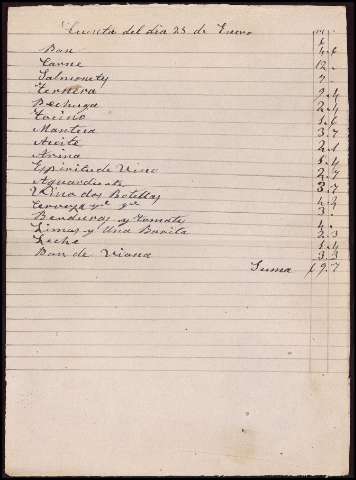 Cuenta del dia 23 de Enero
Pan 4.6
Carne 12.
Salmonety 7
Ternera 9.4
Pechuga 2.4
Tocino 1.6
Manteca 3.7
Aceite 2.1
Arina 1.4
Espiritu de Vino 2.7
Aguardiente 3.7
Vino dos Botellas 4.4
Cerveza 3.
Berduras y Tomate 4.
Limas y Una Barita 2.3
Leche 1.4
Pan de Viana 3.3
Suma 9.7